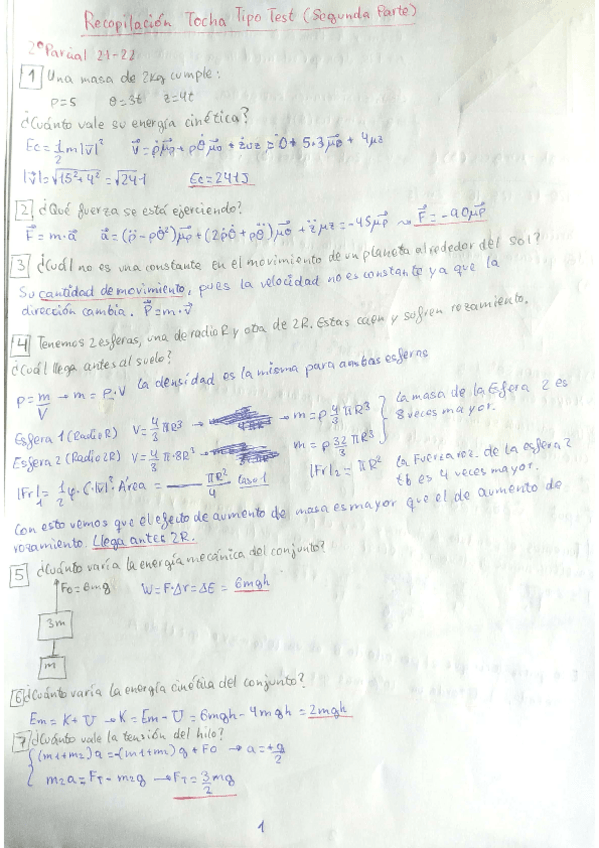 Recopilación Tocha Tipo Test (Segunda Parte)
2º Parcial 21-22
1 Una masa de 2kg cumple:
ρ=5 θ=3t z=4t
¿Cuánto vale su energía cinética?
Ec=1/2 m|v⃗|² v⃗=ρ̇μ⃗ρ+ρθ̇μ⃗θ+żuz=0+5·3μ⃗θ+4μz
|v⃗|=√15²+4²=√241 Ec=241J
2 ¿Qué fuerza se está ejerciendo?
F⃗=m·a⃗ a⃗=(ρ̈-ρθ̇²)μ⃗ρ+(2ρ̇θ̇+ρθ̈)μ⃗θ+z̈μz=-45μ⃗ρ → F⃗=-90μ⃗ρ
3 ¿Cuál no es una constante en el movimiento de un planeta alrededor del sol?
Su cantidad de movimiento, pues la velocidad no es constante ya que la
dirección cambia. P⃗=m·v⃗
4 Tenemos 2 esferas, una de radio R y otra de 2R. Estas caen y sufren rozamiento.
¿Cuál llega antes al suelo?
ρ=m/V → m=ρ·V La densidad es la misma para ambas esferas
Esfera 1 (Radio R) V=4/3 πR³ → m=ρ 4/3 πR³ La masa de la Esfera 2 es
8 veces mayor.
Esfera 2 (Radio 2R) V=4/3 π·8R³ → m=ρ 32/3 πR³
|Fr|₁=1/2 φ·C·|v|²·Área = πR²/4 caso 1 |Fr|₂=πR² La fuerza roz. de la esfera 2
es 4 veces mayor.
Con esto vemos que el efecto de aumento de masa es mayor que el de aumento de
rozamiento. Llega antes 2R.
5 ¿Cuánto varía la energía mecánica del conjunto?
F₀=6mg W=F·Δr=ΔE=6mgh
3m
m
6 ¿Cuánto varía la energía cinética del conjunto?
Em=K+U → K=Em-U=6mgh-4mgh=2mgh
7 ¿Cuánto vale la tensión del hilo?
(m1+m2)a=-(m1+m2)g+F₀ → a=+g/2
m₂a=FT-m₂g → FT=3/2 mg
1